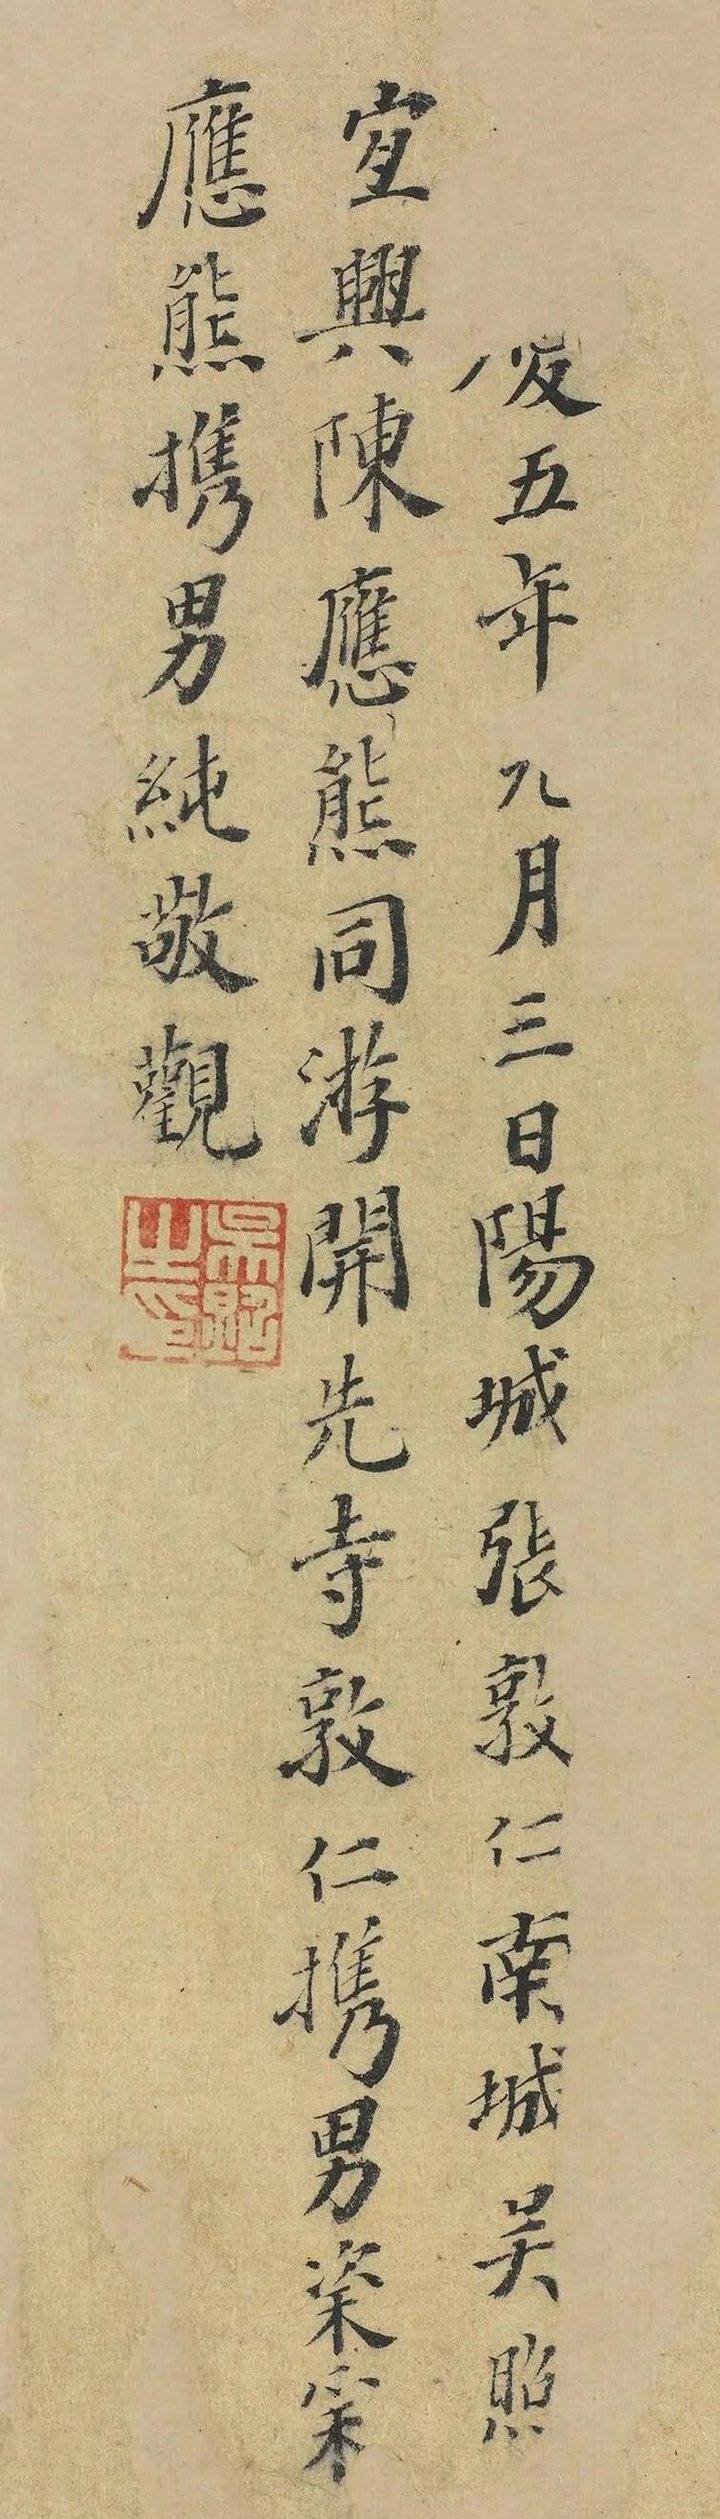 五年九月三日陽城張敦仁南城吴照
宜興陳應熊同游開先寺敦仁携男粢
應熊携男純敬觀
吴照之印